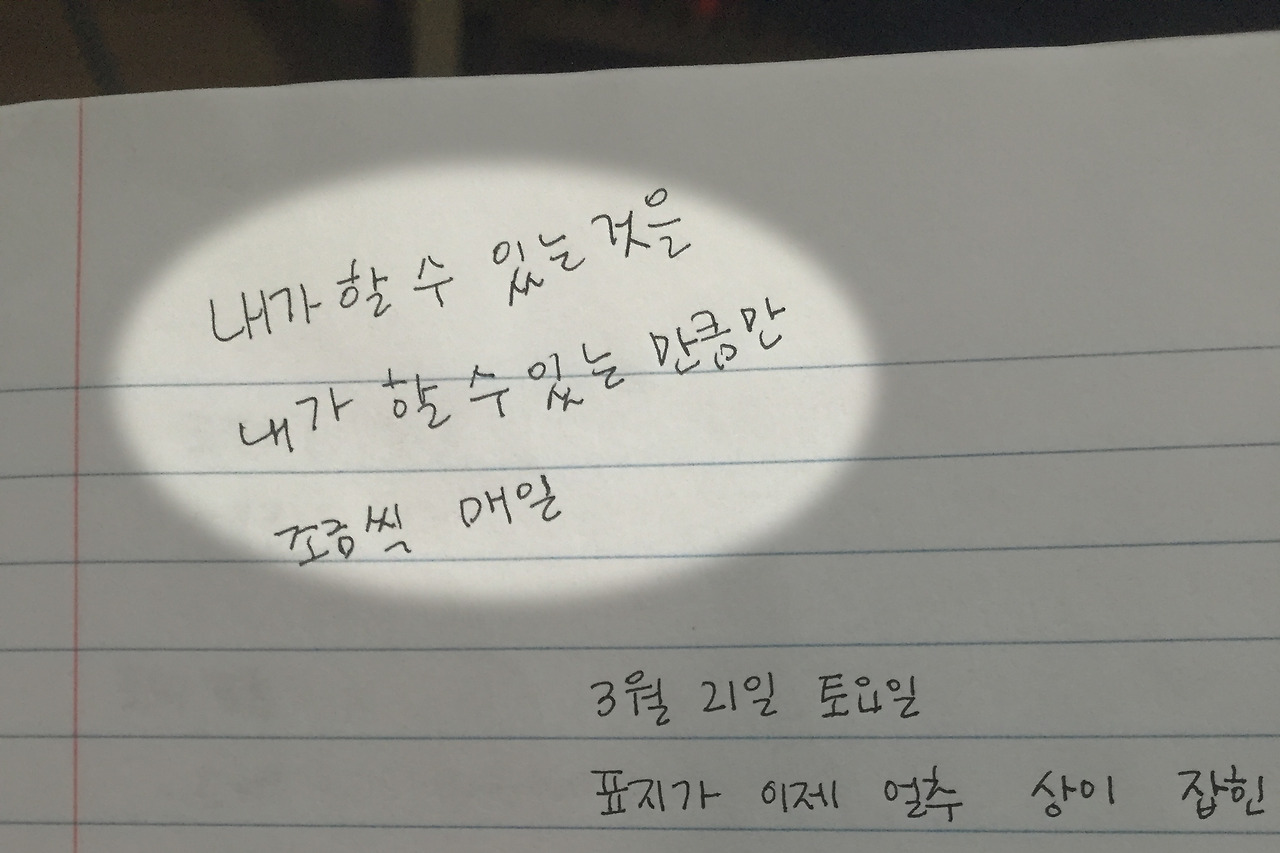 내가 할 수 있는 것을
내가 할 수 있는 만큼만
조금씩 매일
3월 21일 토요일
표지가 이제 얼추 상이 잡힌